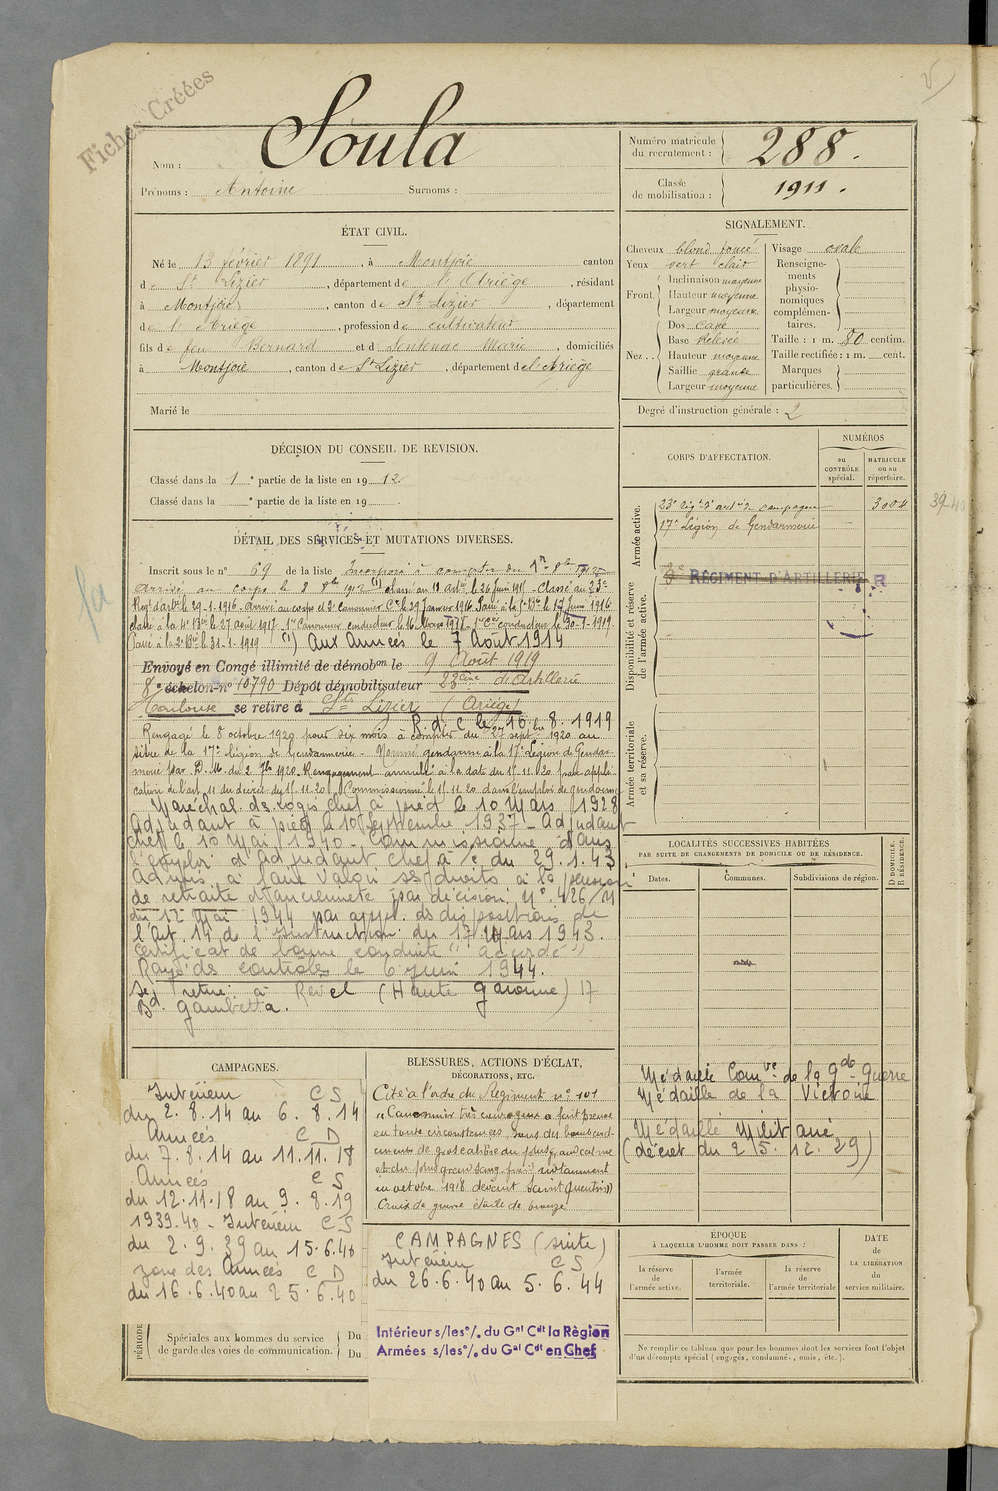 Fiches Créées
Nom : Soula
Prénoms : Antoine Surnoms :
Numéro matricule du recrutement : 288.
Classe de mobilisation : 1911.
ÉTAT CIVIL.
Né le 13 février 1891, à Montjoie canton
de St Lizier, département de l'Ariège, résidant
à Montjoie, canton de St Lizier, département
de l'Ariège, profession de cultivateur
fils de feu Bernard et de Sentenac Marie, domiciliés
à Montjoie, canton de St Lizier, département de l'Ariège
Marié le
SIGNALEMENT.
Cheveux blond foncé
Yeux vert clair
Front. Inclinaison moyenne
Hauteur moyenne
Largeur moyenne
Nez.. Dos cave
Base relevée
Hauteur moyenne
Saillie grande
Largeur moyenne
Visage ovale
Renseignements physionomiques complémentaires.
Taille : 1 m. 80 centim.
Taille rectifiée : 1 m. cent.
Marques particulières.
Degré d'instruction générale : 2
DÉCISION DU CONSEIL DE REVISION.
Classé dans la 1e partie de la liste en 1912
Classé dans la e partie de la liste en 19
DÉTAIL DES SERVICES ET MUTATIONS DIVERSES.
Inscrit sous le n° 69 de la liste Incorporé à compter du 1er 8bre 1912
arrivé au corps le 8 8bre 1912 (1) Classé au 23e
Regt d'artie le 29-1-1916 - arrivé au corps et 2e Canonnier Ct le 29 Janvier 1916. Passé à la Bie le 17 Juin 1916
Passé à la 4e Bie le 27 août 1917 - 1er Canonnier conducteur le 16 Mars 1918
Passé à la 2e Bie le 31-1-1919 (1) Aux Armées le 7 Août 1914
Envoyé en Congé illimité de démobon le 9 Août 1919
8e échelon n° 10790 Dépôt démobilisateur 23ème d'Artillerie
Toulouse se retire à St Lizier (Ariège)
R.d.C le 16.8.1919
Rengagé le 8 octobre 1920 pour six mois à compter du 27 septbre 1920 au
titre de la 17e légion de Gendarmerie - Nommé gendarme à la 17e Légion de Gendar-
merie par D.M. du 2 7bre 1920. Rengagement annulé à la date du 15-11-20 par appli-
cation de l'art. 11 du décret du 15-11-20. Commissionné le 15-11-20 dans l'emploi de gendarme
Maréchal des logis chef à pied le 10 Mars 1928
Adjudant à pied le 10 Septembre 1937 - Adjudant
chef le 10 Mai 1940 - Commissionné dans
l'emploi d'Adjudant chef à /c du 29.1.43
Admis à faire valoir ses droits à la pension
de retraite d'ancienneté par décision n° 426/4
du 12 Mai 1944 par appl. des dispositions de
l'Art. 14 de l'instruction du 17 Mars 1943.
Certificat de bonne conduite "accordé"
Rayé des contrôles le 6 juin 1944.
Se retire à Revel (Haute Garonne) 17
Bd Gambetta.
CORPS D'AFFECTATION.
NUMÉROS
au CONTRÔLE spécial.
MATRICULE ou au répertoire.
Armée active.
23e régt d'artie de campagne 3004
17e Légion de Gendarmerie
39-40
Disponibilité et réserve de l'armée active.
3e RÉGIMENT D'ARTILLERIE R
Armée territoriale et sa réserve.
LOCALITÉS SUCCESSIVES HABITÉES
PAR SUITE DE CHANGEMENTS DE DOMICILE OU DE RÉSIDENCE.
Dates.
Communes.
Subdivisions de région.
D DOMICILE. R RÉSIDENCE.
Médaille Comve de la Gde Guerre
Médaille de la Victoire
Médaille Militaire
(décret du 25.12.29)
CAMPAGNES.
Intérieur C S
du 2.8.14 au 6.8.14
Armées C D
du 7.8.14 au 11.11.18
Armées C S
du 12.11.18 au 9.8.19
1939.40 - Intérieur C S
du 2.9.39 au 15.6.40
zone des Armées C D
du 16.6.40 au 25.6.40
BLESSURES, ACTIONS D'ÉCLAT,
DÉCORATIONS, ETC.
Cité à l'ordre du Régiment n° 101
"Canonnier très courageux a fait preuve
en toute circonstances, sous des bombarde-
ments de gros calibre du plus grand calme
et du plus grand sang froid notamment
en octobre 1918 devant Saint Quentin"
Croix de guerre étoile de bronze
CAMPAGNES (suite)
Intérieur C S
du 26.6.40 au 5.6.44
Intérieur s/les °/. du Gal Cdt la Région
Armées s/les °/. du Gal Cdt en Chef
PÉRIODE
Spéciales aux hommes du service de garde des voies de communication.
Du
Du
ÉPOQUE
À LAQUELLE L'HOMME DOIT PASSER DANS :
la réserve de l'armée active.
l'armée territoriale.
la réserve de l'armée territoriale
DATE de LA LIBÉRATION du service militaire.
Ne remplir ce tableau que pour les hommes dont les services font l'objet
d'un décompte spécial (engagés, condamnés, omis, etc.).